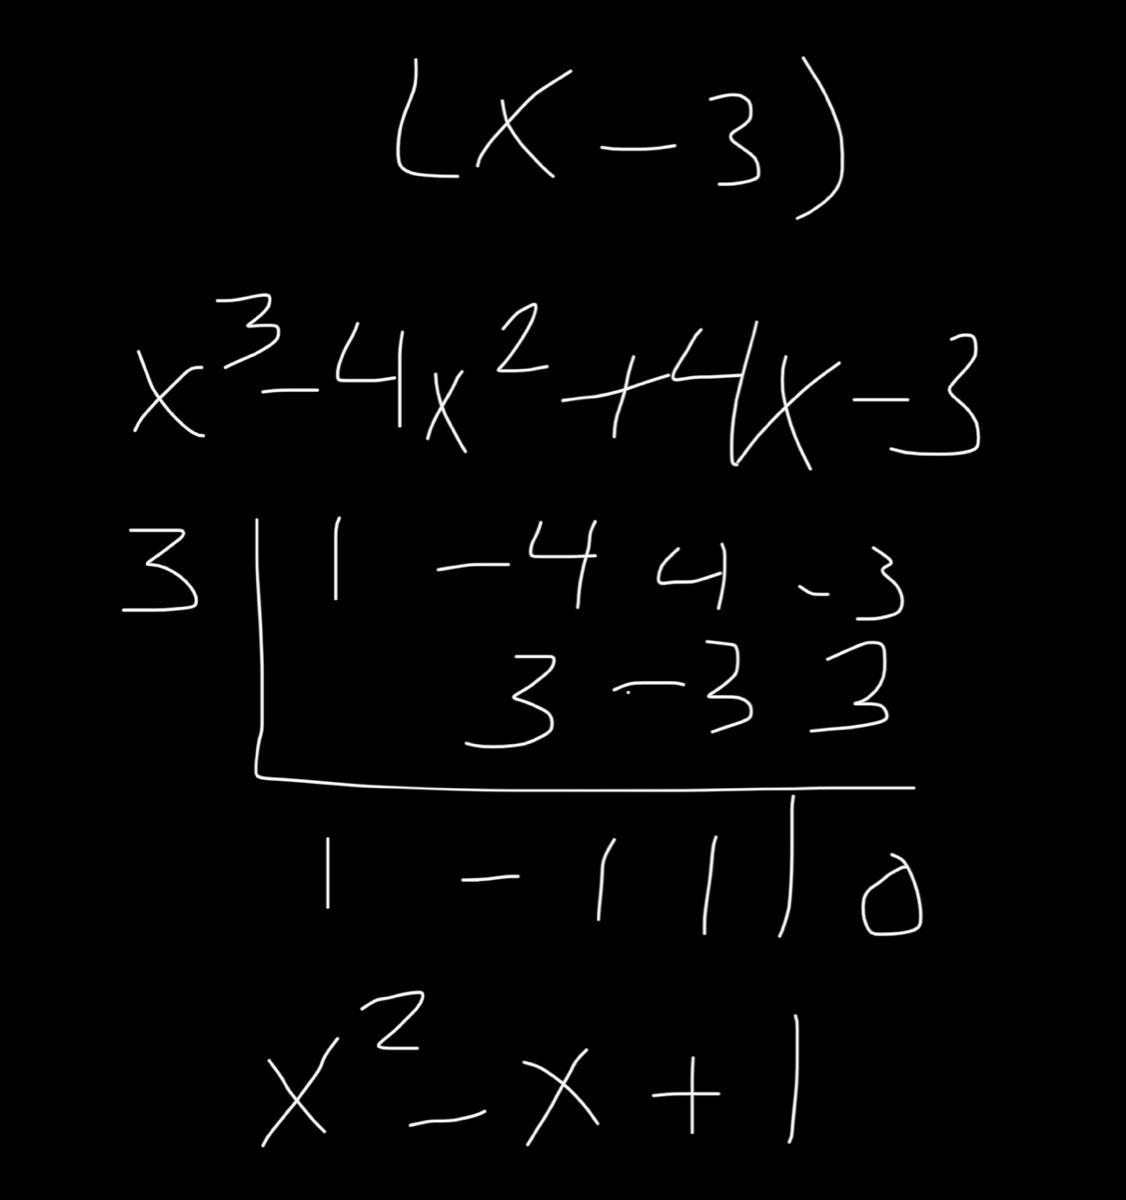 (x - 3)
x³ - 4x² + 4x - 3
3 | 1 - 4 4 - 3
3 - 3 3
1 - 1 1 | 0
x² - x + 1